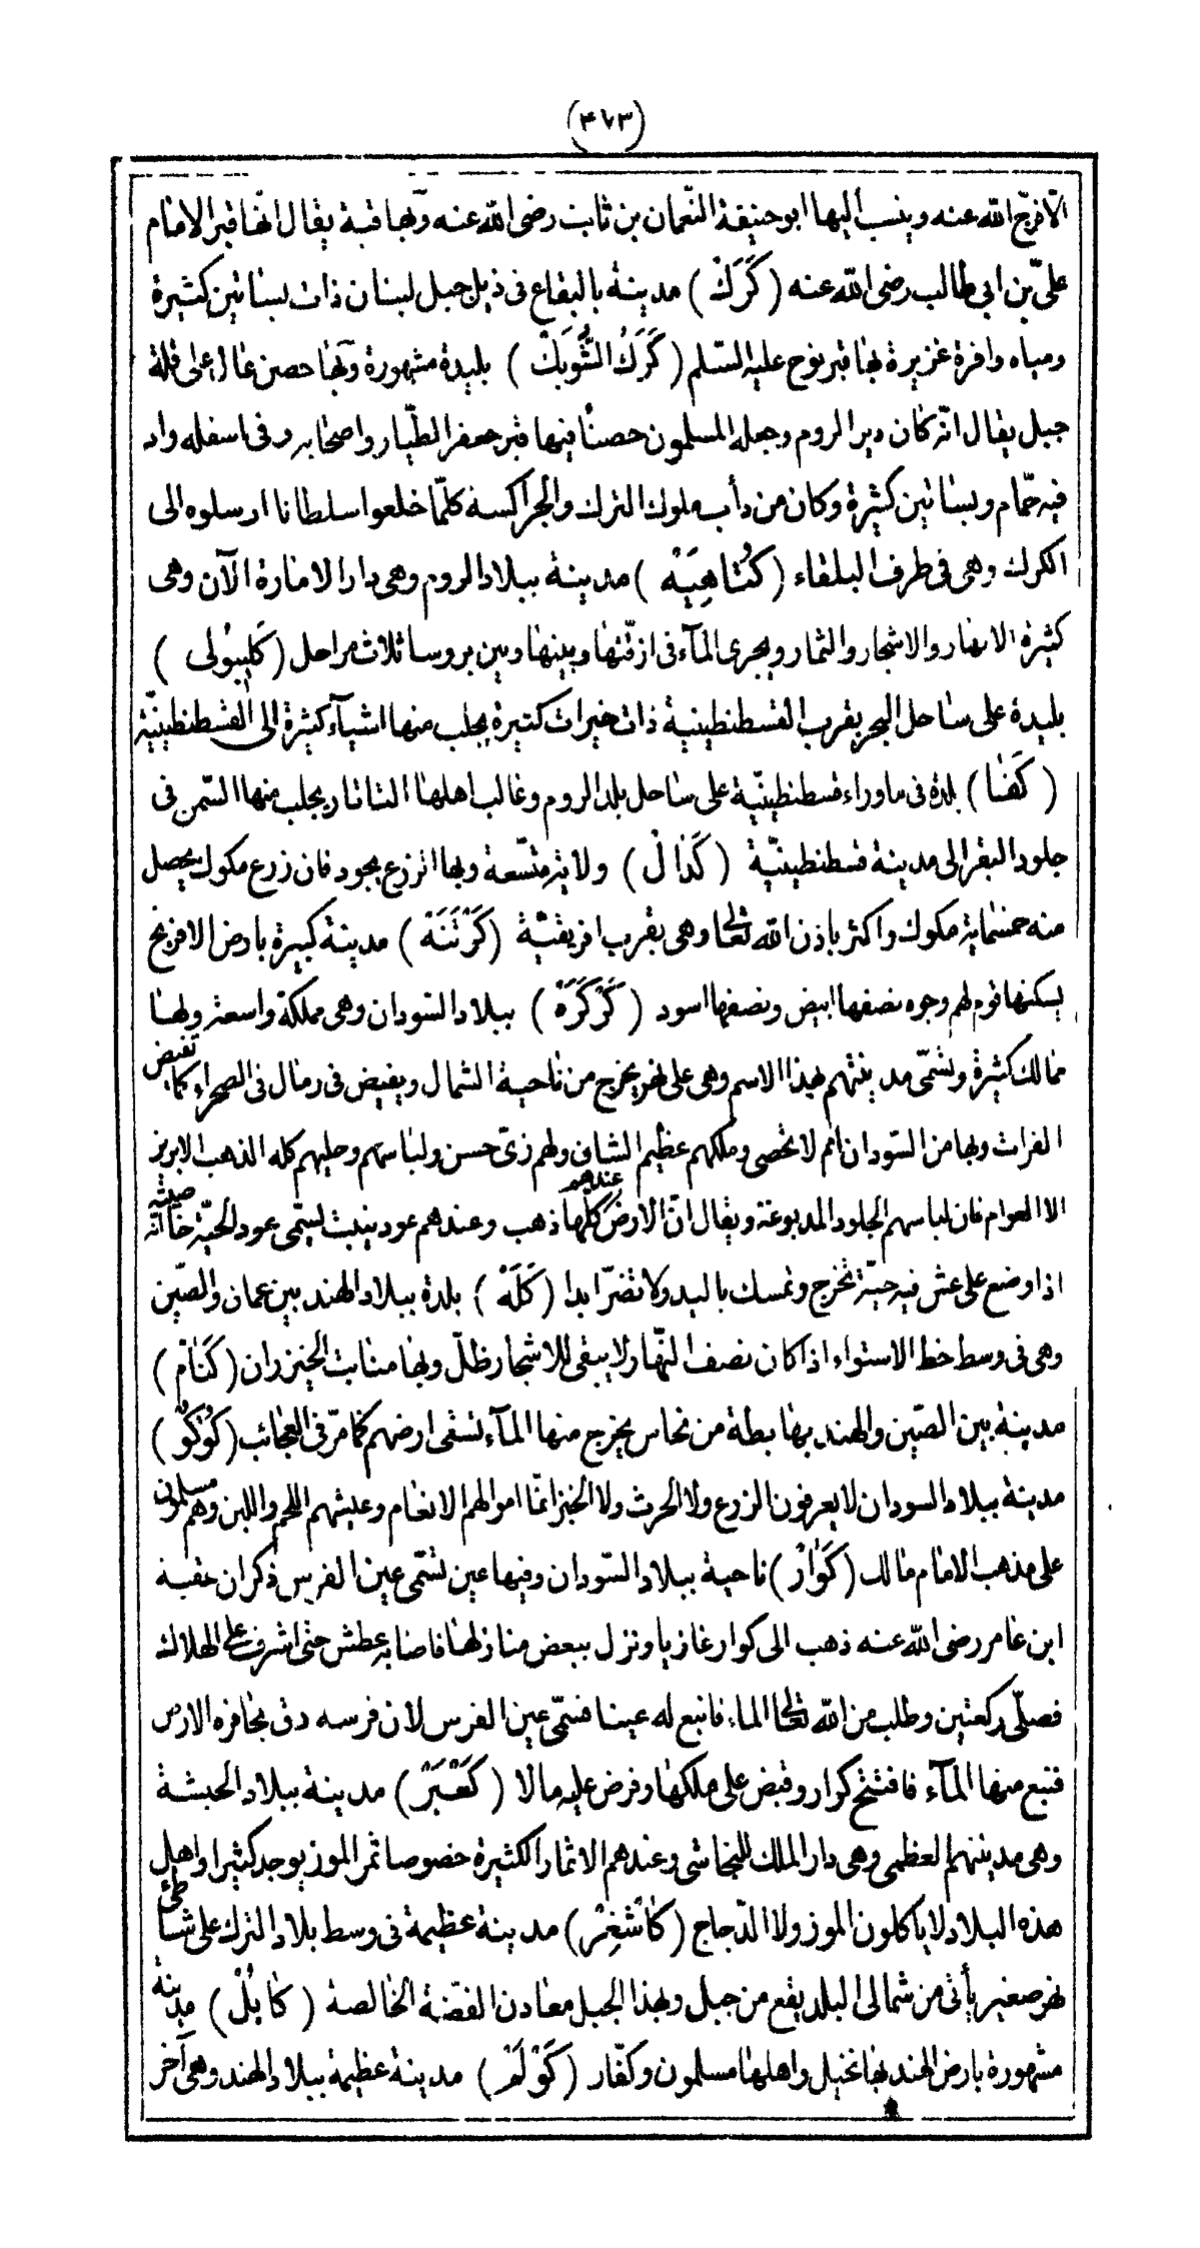 (٤٧٣)
الا فرج الله عنه وينسب اليها ابو حنيفة النّعمان بن ثابت رضى الله عنه وبها قبة يقال انّها قبر الامام
علىّ بن ابى طالب رضى الله عنه ( كَرَكْ ) مدينة بالبقاع فى ذيل جبل لبنان ذات بساتين كثيرة
ومياه وافرة غزيرة بها قبر نوح عليه السّلم ( كَرَكُ الشَّوبَكْ ) بليدة مشهورة وبها حصن عال على قلة
جبل يقال انّه كان دير الروم وجعله المسلمون حصنًا فيها قبر جعفر الطّيار واصحابه وفى اسفله واد
فيه حمّام وبساتين كثيرة وكان من دأب ملوك الترك والجراكسة كلّما خلعوا سلطانا ارسلوه الى
الكرك وهى فى طرف البلقاء ( كُتاهِيَه ) مدينة ببلاد الروم وهى دار الامارة الآن وهى
كثيرة الانهار والاشجار والثمار ويجرى المآء فى ازقّتها وبينها وبين بروسا ثلاث مراحل ( كَلِيبُولى )
بليدة على ساحل البحر بقرب القسطنطينية ذات خيرات كثيرة يجلب منها اشيآء كثيرة الى القسطنطينيّة
( كَفَا ) بلدة فى ما وراء قسطنطينيّة على ساحل بلد الروم وغالب اهلها التاتار يجلب منها السّمن فى
جلود البقر الى مدينة قسطنطينيّة ( كَدَالْ ) ولاية متّسعة وبها انزرع يجود فان زرع مكوك يحصل
منه خمسماية مكوك واكثر باذن الله تعالى وهى بقرب افريقيّة ( كَرْثَنَة ) مدينة كبيرة بارض الافرنج
يسكنها قوم لهم وجوه نصفها ابيض ونصفها اسود ( كَرْكَرَة ) ببلاد السّودان وهى مملكة واسعة ولها
ممالك كثيرة وتسمّى مدينتهم بهذا الاسم وهى على نهر يخرج من ناحية الشمال ويفيض فى رمال فى الصحراء كما تفيض
الفرات وبها من السّودان امم لا تحصى وملكهم عظيم الشان ولهم زىّ حسن ولباسهم وحليهم كله الذهب الابريز
الا العوام فان لباسهم الجلود المدبوغة ويقال انّ الارض عندهم كلّها ذهب وعندهم عود ينبت يسمّى عود الحيّة خاصيته انّه
اذا وضع على عش فيه حيّة تخرج وتمسك باليد ولا تضرّ ابدا ( كَلَهْ ) بلدة ببلاد الهند بين عمان والصّين
وهى فى وسط خط الاستواء اذا كان نصف النّهار لا يبقى للاشجار ظلّ وبها منابت الخيزران ( كَنَامْ )
مدينة بين الصّين والهند بها بطة من نحاس يخرج منها المآء تسقى ارضهم كما مرّ فى العجائب ( كُوْكُوْ )
مدينة ببلاد السودان لا يعرفون الزرع ولا الحرث ولا الخبز انّما اموالهم الانعام وعيشهم اللحم واللبن وهم مسلمون
على مذهب الامام مالك ( كَوَارْ ) ناحية ببلاد السّودان وفيها عين تسمّى عين الفرس ذكر ان عقبة
ابن عامر رضى الله عنه ذهب الى كوار غازيا ونزل ببعض منازلها فاصابه عطش حتى اشرف على الهلاك
فصلّى ركعتين وطلب من الله تعالى الماء فانبع له عينا فسمّى عين الفرس لان فرسه دق بحافره الارض
فنبع منها المآء فافتتح كوار وقبض على ملكها وفرض عليه مالا ( كَعْبَرْ ) مدينة ببلاد الحبشة
وهى مدينتهم العظمى وهى دار الملك للنجاشى وعندهم الاثمار الكثيرة خصوصا ثمر الموز يوجد كثيرا واهل
هذه البلاد لا ياكلون الموز ولا الدّجاج ( كاشْغِرْ ) مدينة عظيمة فى وسط بلاد الترك على شاطئ
نهر صغير يأتى من شمالى البلد يقع من جبل وبهذا الجبل معادن الفضّة الخالصة ( كابُلْ ) مدينة
مشهورة بارض الهند بها نخيل واهلها مسلمون وكفّار ( كَوْلَمْ ) مدينة عظيمة ببلاد الهند وهى آخر